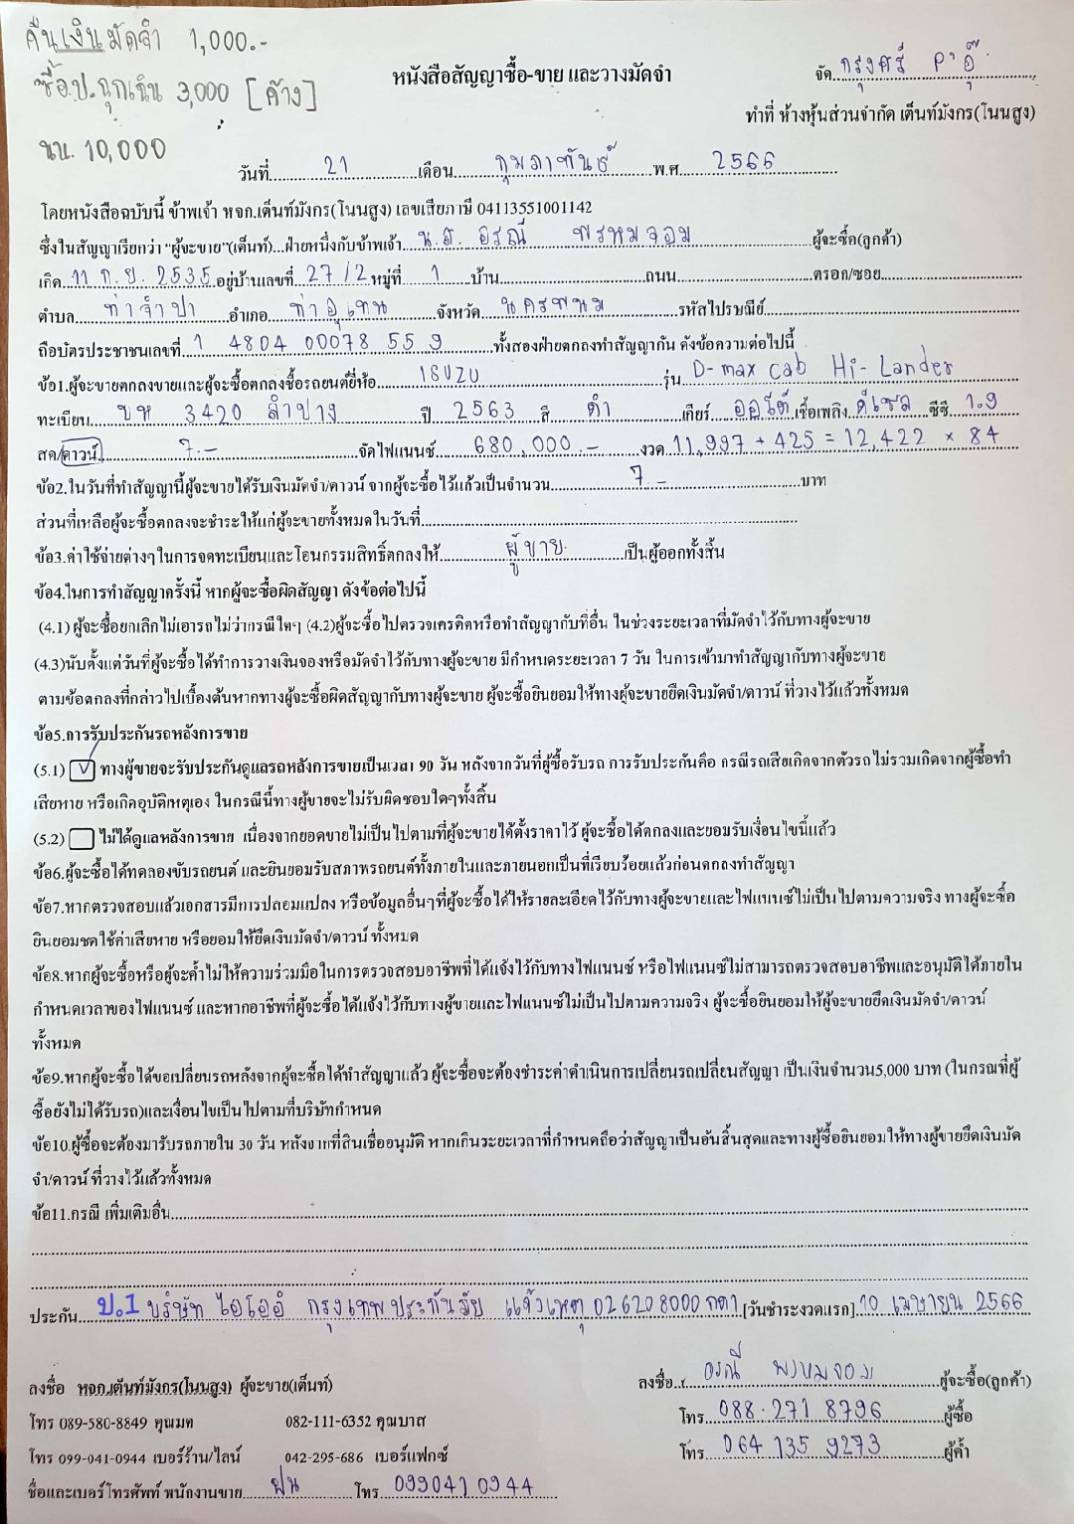 คืนเงินมัดจำ 1,000.-
ซื้อ.ป.ฉุกเฉิน 3,000 [ค้าง]
นน. 10,000
หนังสือสัญญาซื้อ-ขาย และวางมัดจำ
จัด กรุงศรี P'อู๊
ทำที่ ห้างหุ้นส่วนจำกัด เต็นท์มังกร(โนนสูง)
วันที่ 21 เดือน กุมภาพันธ์ พ.ศ 2566
โดยหนังสือฉบับนี้ ข้าพเจ้า หจก.เต็นท์มังกร(โนนสูง) เลขเสียภาษี 04113551001142
ซึ่งในสัญญาเรียกว่า "ผู้จะขาย"(เต็นท์)...ฝ่ายหนึ่งกับข้าพเจ้า น.ส. อรณี พรหมจอม ผู้จะซื้อ(ลูกค้า)
เกิด 11 ก.ย. 2535 อยู่บ้านเลขที่ 27/2 หมู่ที่ 1 บ้าน ถนน ตรอก/ซอย
ตำบล ท่าจำปา อำเภอ ท่าอุเทน จังหวัด นครพนม รหัสไปรษณีย์
ถือบัตรประชาชนเลขที่ 1 4804 00078 55 9 ทั้งสองฝ่ายตกลงทำสัญญากัน ดังข้อความต่อไปนี้
ข้อ1.ผู้จะขายตกลงขายและผู้จะซื้อตกลงซื้อรถยนต์ยี่ห้อ ISUZU รุ่น D-max cab Hi-Lander
ทะเบียน บห 3420 ลำปาง ปี 2563 สี ดำ เกียร์ ออโต้ เชื้อเพลิง ดีเซล ซีซี 1.9
สด/ดาวน์ 7.- จัดไฟแนนซ์ 680,000.- งวด 11,997 + 425 = 12,422 × 84
ข้อ2.ในวันที่ทำสัญญานี้ผู้จะขายได้รับเงินมัดจำ/ดาวน์ จากผู้จะซื้อ ไว้แล้วเป็นจำนวน 7.- บาท
ส่วนที่เหลือผู้จะซื้อตกลงจะชำระให้แก่ผู้จะขายทั้งหมดในวันที่
ข้อ3.ค่าใช้จ่ายต่างๆในการจดทะเบียนและโอนกรรมสิทธิ์ตกลงให้ ผู้ขาย เป็นผู้ออกทั้งสิ้น
ข้อ4.ในการทำสัญญาครั้งนี้ หากผู้จะซื้อผิดสัญญา ดังข้อต่อไปนี้
(4.1) ผู้จะซื้อยกเลิกไม่เอารถไม่ว่ากรณีใดๆ (4.2)ผู้จะซื้อไปตรวจเครดิตหรือทำสัญญากับที่อื่น ในช่วงระยะเวลาที่มัดจำไว้กับทางผู้จะขาย
(4.3)นับตั้งแต่วันที่ผู้จะซื้อได้ทำการวางเงินจองหรือมัดจำไว้กับทางผู้จะขาย มีกำหนดระยะเวลา 7 วัน ในการเข้ามาทำสัญญากับทางผู้จะขาย
ตามข้อตกลงที่กล่าวไปเบื้องต้นหากทางผู้จะซื้อผิดสัญญากับทางผู้จะขาย ผู้จะซื้อยินยอมให้ทางผู้จะขายยึดเงินมัดจำ/ดาวน์ ที่วางไว้แล้วทั้งหมด
ข้อ5.การรับประกันรถหลังการขาย
(5.1) ทางผู้ขายจะรับประกันดูแลรถหลังการขายเป็นเวลา 90 วัน หลังจากวันที่ผู้ซื้อรับรถ การรับประกันคือ กรณีรถเสียเกิดจากตัวรถ ไม่รวมเกิดจากผู้ซื้อทำ
เสียหาย หรือเกิดอุบัติเหตุเอง ในกรณีนี้ทางผู้ขายจะไม่รับผิดชอบใดๆทั้งสิ้น
(5.2) ไม่ได้ดูแลหลังการขาย เนื่องจากยอดขายไม่เป็นไปตามที่ผู้จะขายได้ตั้งราคาไว้ ผู้จะซื้อได้ตกลงและยอมรับเงื่อนไขนี้แล้ว
ข้อ6.ผู้จะซื้อได้ทดลองขับรถยนต์ และยินยอมรับสภาพรถยนต์ทั้งภายในและภายนอกเป็นที่เรียบร้อยแล้วก่อนตกลงทำสัญญา
ข้อ7.หากตรวจสอบแล้วเอกสารมีการปลอมแปลง หรือข้อมูลอื่นๆที่ผู้จะซื้อได้ให้รายละเอียดไว้กับทางผู้จะขายและไฟแนนซ์ไม่เป็นไปตามความจริง ทางผู้จะซื้อ
ยินยอมชดใช้ค่าเสียหาย หรือยอมให้ยึดเงินมัดจำ/ดาวน์ ทั้งหมด
ข้อ8.หากผู้จะซื้อหรือผู้จะค้ำไม่ให้ความร่วมมือในการตรวจสอบอาชีพที่ได้แจ้งไว้กับทางไฟแนนซ์ หรือไฟแนนซ์ไม่สามารถตรวจสอบอาชีพและอนุมัติได้ภายใน
กำหนดเวลาของไฟแนนซ์ และหากอาชีพที่ผู้จะซื้อได้แจ้งไว้กับทางผู้ขายและไฟแนนซ์ไม่เป็นไปตามความจริง ผู้จะซื้อยินยอมให้ผู้จะขายยึดเงินมัดจำ/ดาวน์
ทั้งหมด
ข้อ9.หากผู้จะซื้อได้ขอเปลี่ยนรถหลังจากผู้จะซื้อได้ทำสัญญาแล้ว ผู้จะซื้อจะต้องชำระค่าดำเนินการเปลี่ยนรถเปลี่ยนสัญญา เป็นเงินจำนวน5,000 บาท (ในกรณที่ผู้
ซื้อยังไม่ได้รับรถ)และเงื่อนไขเป็นไปตามที่บริษัทกำหนด
ข้อ10.ผู้ซื้อจะต้องมารับรถภายใน 30 วัน หลังจากที่สินเชื่ออนุมัติ หากเกินระยะเวลาที่กำหนดถือว่าสัญญาเป็นอันสิ้นสุดและทางผู้ซื้อยินยอมให้ทางผู้ขายยึดเงินมัด
จำ/ดาวน์ ที่วางไว้แล้วทั้งหมด
ข้อ11.กรณี เพิ่มเติมอื่น
ประกัน ป.1 บริษัท ไอโออิ กรุงเทพประกันภัย แจ้งเหตุ 026208000 กดา [วันชำระงวดแรก] 10 เมษายน 2566
ลงชื่อ หจก.เต้นท์มังกร(โนนสูง) ผู้จะขาย(เต็นท์)
ลงชื่อ อรณี พรหมจอม ผู้จะซื้อ(ลูกค้า)
โทร 089-580-8849 คุณมด 082-111-6352 คุณบาส
โทร 088-271 8796 ผู้ซื้อ
โทร 099-041-0944 เบอร์ร้าน/ไลน์ 042-295-686 เบอร์แฟกซ์
โทร 064 135 9273 ผู้ค้ำ
ชื่อและเบอร์โทรศัพท์ พนักงานขาย ฝน โทร 0990410944